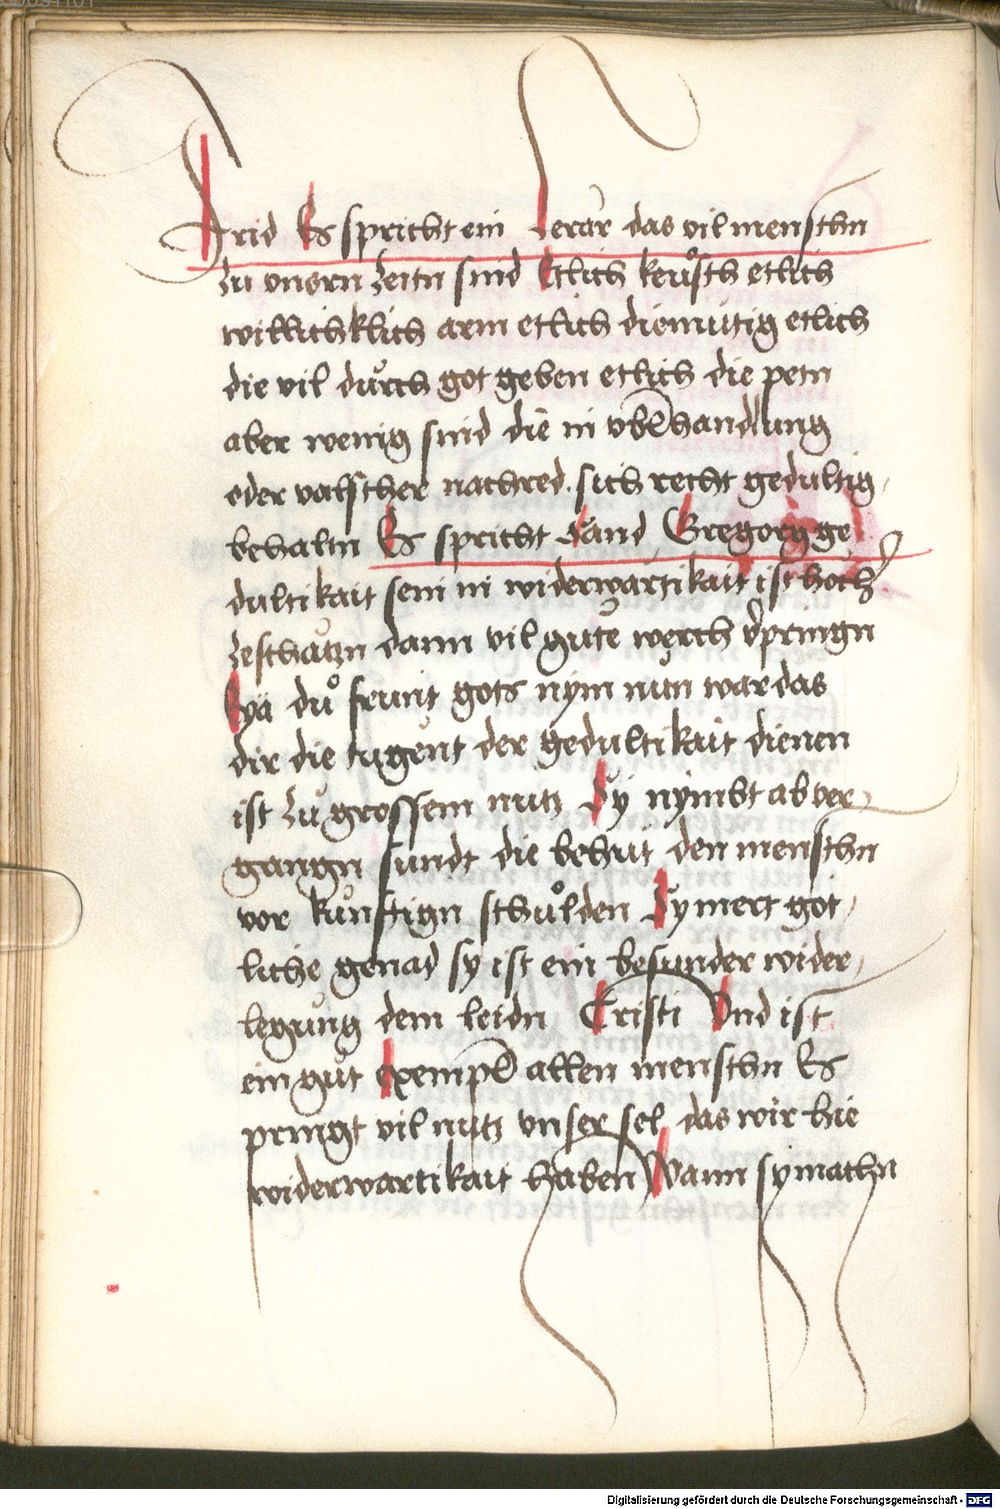 Frid Es spricht ein Lerar das vil menschn
zu vnsrn zeitn sind Etlich keüsch etlich
willichklich arm etlich diemütig etlich
die vil durch got geben etlich die petn
aber wenig sind die in vberhandlung
oder valscher nachred sich recht gedultig
behaltn Es spricht Sand Gregory ge
dultikait sein in widerwärtikait ist höch
zeschatzn dann vil gute werch verpringn
Eyä du frunt gots nym nun war das
dir die tugent der gedultikait dienen
ist zu grossem nutz Sy nymbt ab ver
gangn sundt die behüt den menschn
vor kunftign schulden Sy mert got
liche genad sy ist ein besunder wider
legung dem leidn Cristi Vnd ist
ein gut exempel allen menschn Es
pringt vil nutz vnser sel das wir hie
widerwartikait haben Wann sy machn
Digitalisierung gefördert durch die Deutsche Forschungsgemeinschaft - DFG